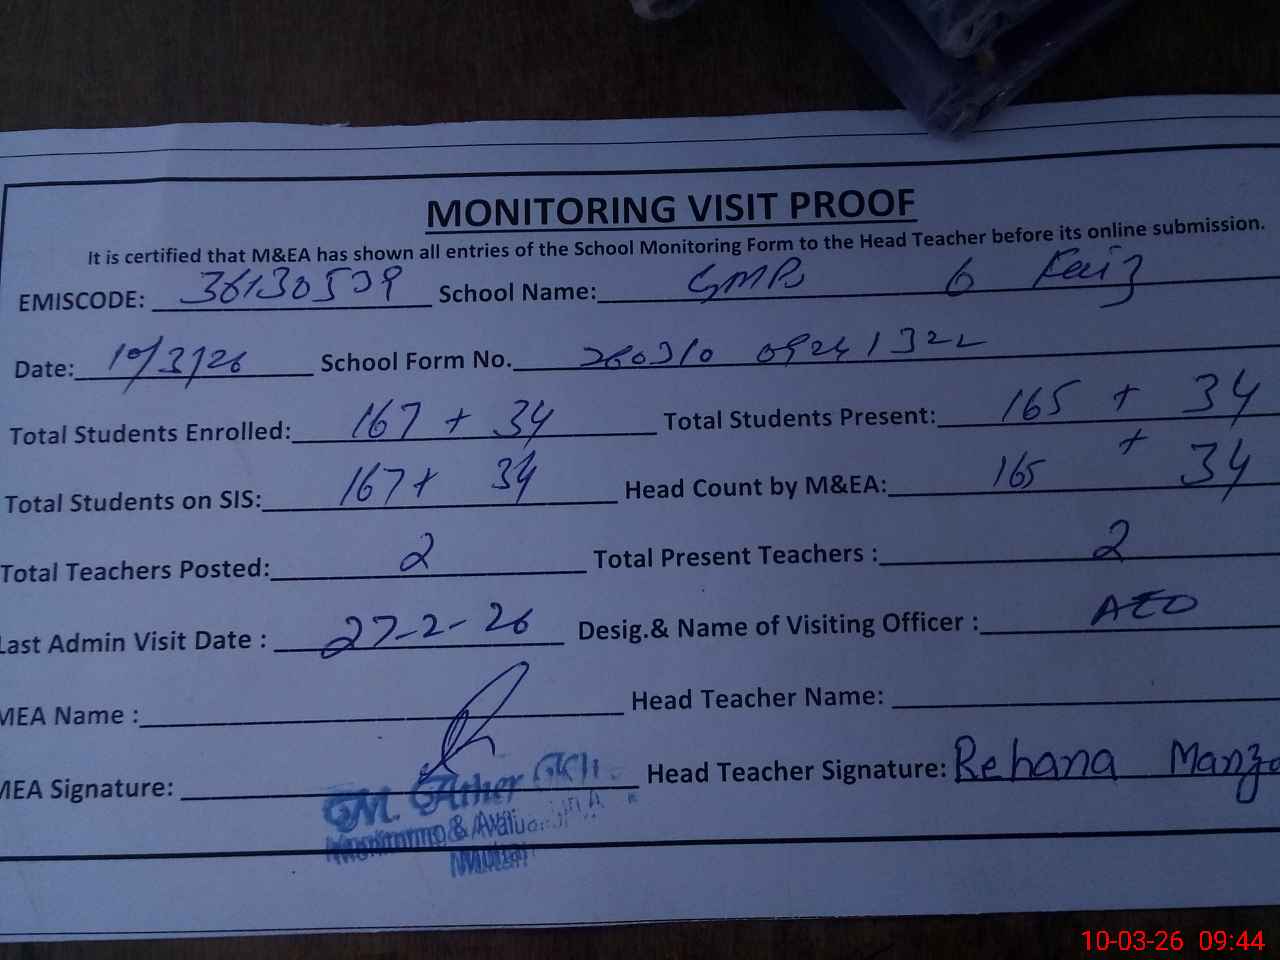 MONITORING VISIT PROOF
It is certified that M&EA has shown all entries of the School Monitoring Form to the Head Teacher before its online submission.
EMISCODE: 36130539 School Name: GMPS 6 Faiz
Date: 10/3/26 School Form No. 260310 09241322
Total Students Enrolled: 167 + 34 Total Students Present: 165 + 34
Total Students on SIS: 167 + 34 Head Count by M&EA: 165 + 34
Total Teachers Posted: 2 Total Present Teachers : 2
Last Admin Visit Date : 27-2-26 Desig.& Name of Visiting Officer : AEO
MEA Name : Head Teacher Name:
MEA Signature: Head Teacher Signature: Rehana
M. Ather
Monitoring &
Multan
10-03-26 09:44